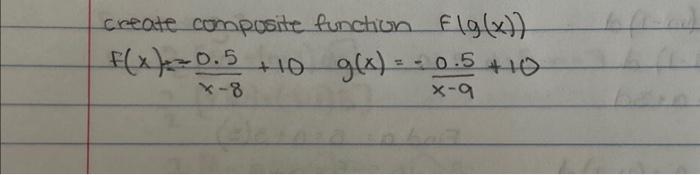 create composite function F(g(x))
F(x)=-0.5/(x-8) + 10 g(x) = -0.5/(x-9) + 10